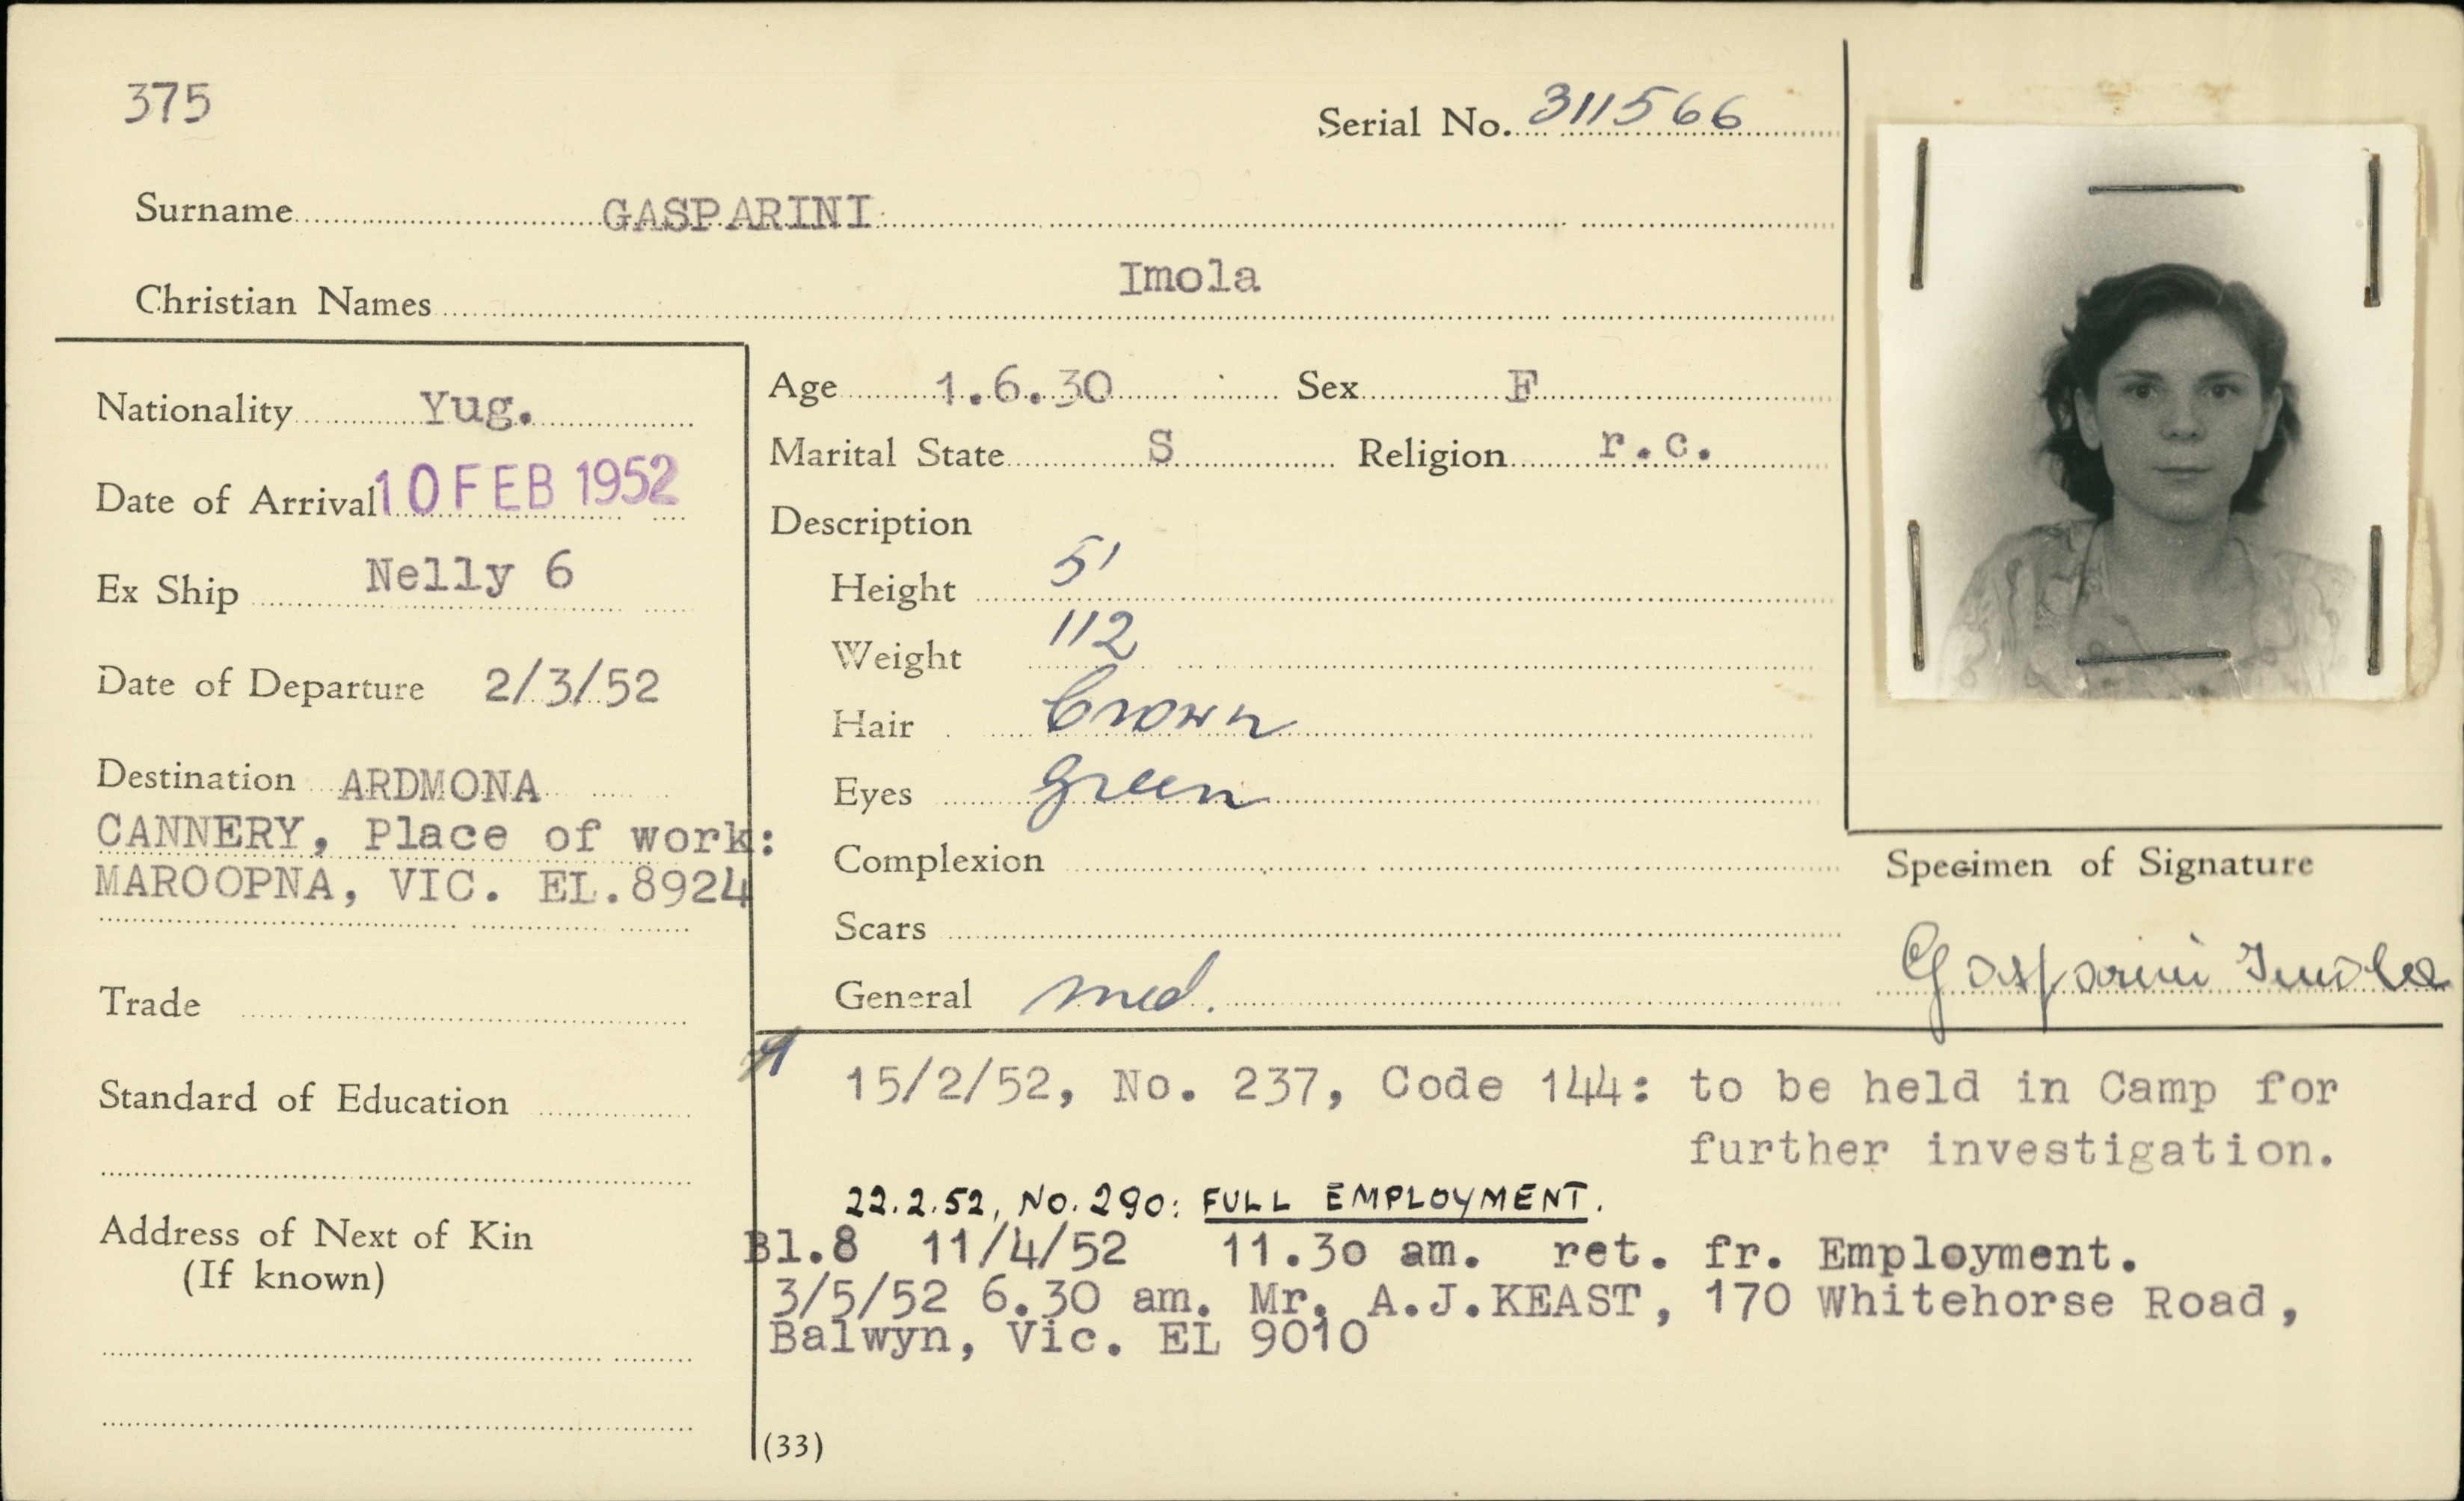 375
Serial No. 311566
Surname GASPARINI
Christian Names Imola
Nationality Yug.
Date of Arrival 10 FEB 1952
Ex Ship Nelly 6
Date of Departure 2/3/52
Destination ARDMONA
CANNERY, Place of work:
MAROOPNA, VIC. EL.8924
Trade
Standard of Education
Address of Next of Kin
(If known)
Age 1.6.30 Sex F
Marital State S Religion r.c.
Description
Height 5'
Weight 112
Hair brown
Eyes green
Complexion
Scars
General med.
Specimen of Signature
Gasparini Imola
15/2/52, No. 237, Code 144: to be held in Camp for
further investigation.
22.2.52, No. 290: FULL EMPLOYMENT.
Bl.8 11/4/52 11.30 am. ret. fr. Employment.
3/5/52 6.30 am. Mr. A.J.KEAST, 170 Whitehorse Road,
Balwyn, Vic. EL 9010
(33)